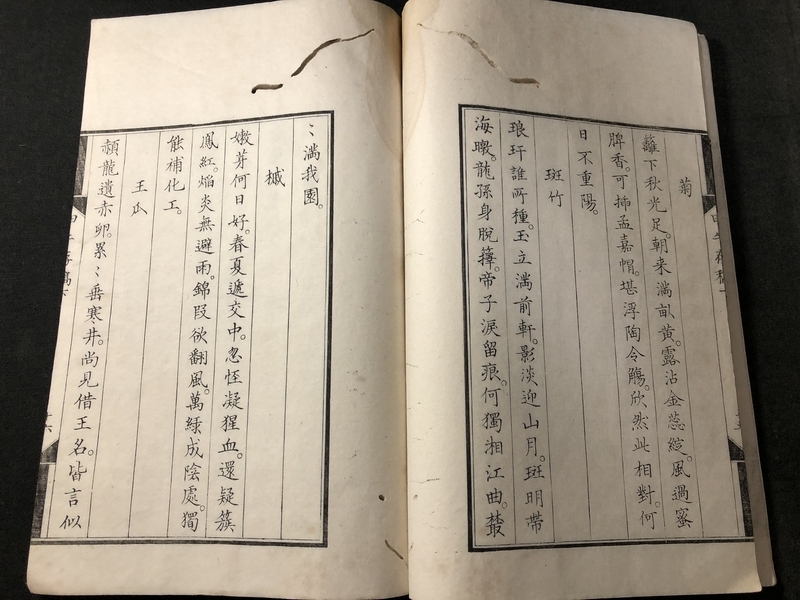 菊
蘺下秋光足。朝来満畝黄。露沾金蕊綻。風過蜜
脾香。可挿孟嘉帽。堪浮陶令觴。欣然此相對。何
日不重陽。
斑竹
琅玕誰所種。玉立満前軒。影淡迎山月。斑明帯
海暾。龍孫身脫籜。帝子淚留痕。何獨湘江曲。叢
〻満我園。
槭
嫩芽何日好。春夏遞交中。忽恠凝猩血。還疑簇
鳳紅。焔炎無避雨。錦段欲翻風。萬緑成陰處。獨
能補化工。
王瓜
頳龍遺赤卵。累〻垂寒井。尚見借王名。皆言似